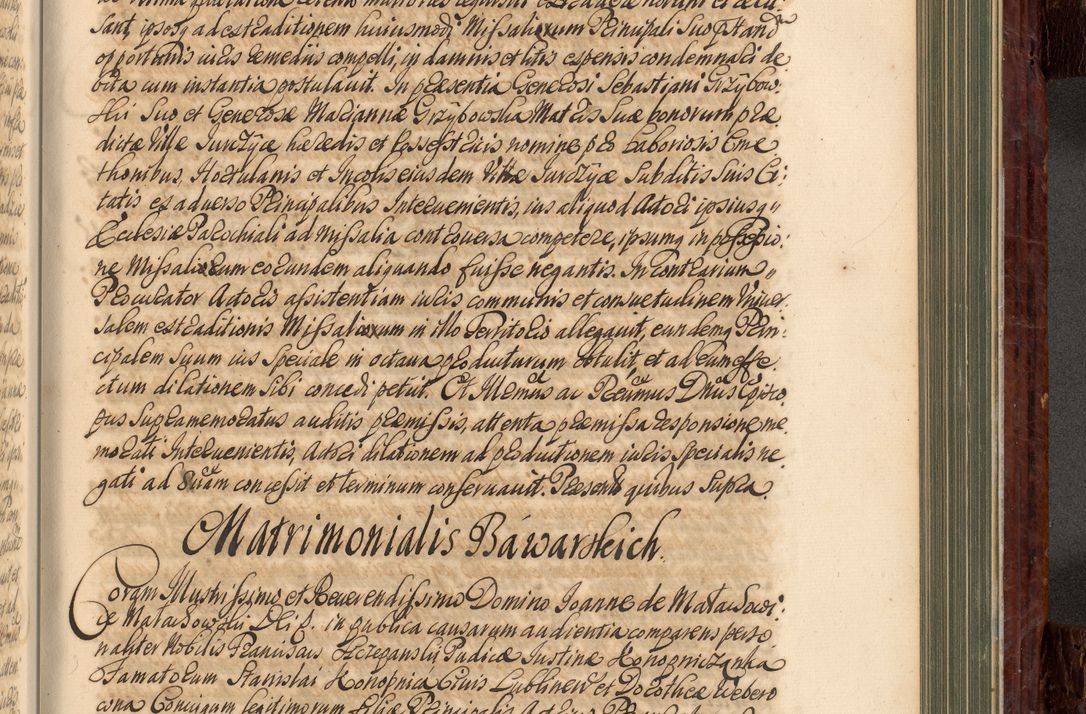 sant, ipsosq ad extraditionem huiusmodi Missaliorum Principali suo stand
opportunis iuris remediis compelli, in damnis et litis expensis condemnari de
bita cum instantia postulauit. In præsentia Generosi Sebastiani Grzÿbow
skii suo et Generosæ Mariannæ Grzÿbowska Matris suæ bonorum præ
dictæ Villæ Jurczÿcæ hæredis et possestricis nomine pro Laboriosis Cme
thonibus, Hortulanis et Incolis eiusdem Villæ Jurczÿcæ Subditis suis Ci:
tatis ex aduerso Principalibus Interuenientis, ius aliquod Actori ipsiusq
Ecclesiæ Parochiali ad Missalia controuersa competere, ipsumq in possessio:
ne Missaliorum eorundem aliquando fuisse negantis. In contrarium
Procurator Actoris assistentiam iuris communis et consuetudinem Vniuer
salem extraditionis Missaliorum in illo Territorio allegauit, eundemq Prin:
cipalem suum ius speciale in octaua producturum obtulit, et ad eum effe
ctum dilationem sibi concedi petiit. Et Illrmus ac Rndmus Dnus Episco
pus supramemoratus auditis præmissis, attenta præmissa responsione me
morati Interuenientis, Actori dilationem ad productionem iuris specialis ne
gati ad 8uam concessit et terminum conseruauit. Præsent quibus supra.
Matrimonialis Báwarskich.
Coram Illustrissimo et Reuerendissimo Domino Joanne de Mata
in publica causarum audientia comparens perso
naliter Nobilis Franciscus Pudicæ Justinæ Konopniczanka
Famatorum Stanislai Konopnica Ciuis Lublinen et Dorotheæ Webero
cona Coniugum legitimorum filiæ Principalis